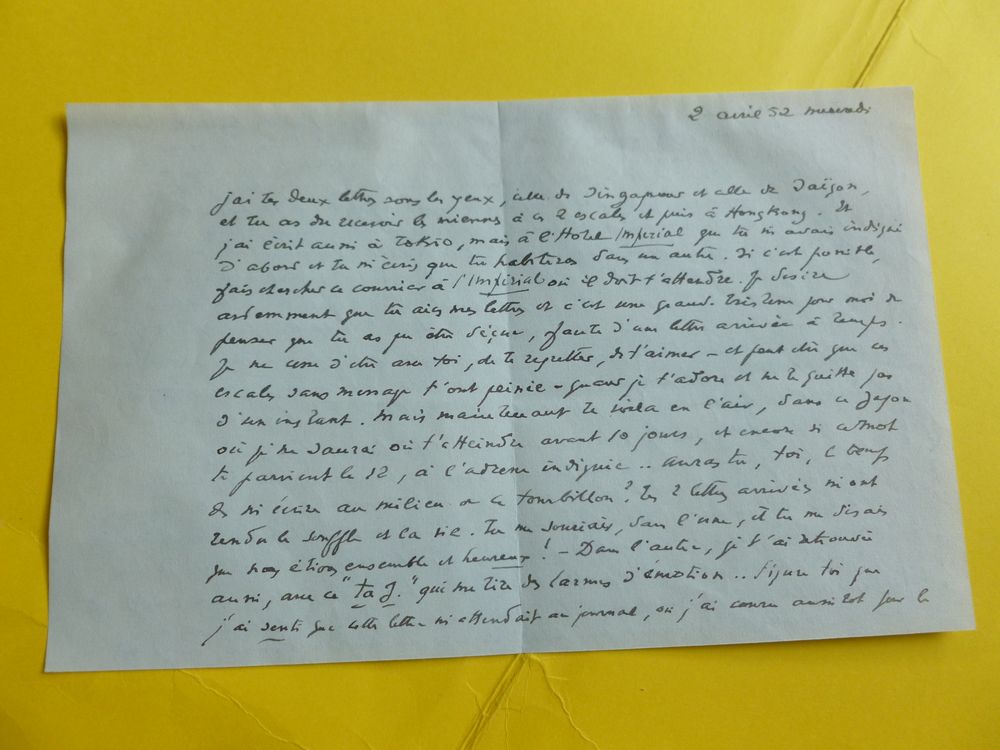 2 avril 52 mercredi
j'ai tes deux lettres sous les yeux, celle de Singapour et celle de Saïgon,
et tu as dû recevoir les miennes à ces 2 escales et puis à Hongkong. Et
j'ai écrit aussi à Tokio, mais à l'Hotel Impérial que tu m'avais indiqué
d'abord et tu m'écris que tu habiteras dans un autre. Si c'est possible,
fais chercher ce courrier à l'Impérial où il doit t'attendre. Je désire
ardemment que tu aies mes lettres et c'est une grande tristesse pour moi de
penser que tu as pu être déçue, faute d'une lettre arrivée à temps.
Je ne cesse d'être avec toi, de te regretter, de t'aimer – et peut être que ces
escales sans message t'ont peinée – quand je t'adore et ne te quitte pas
d'un instant. Mais maintenant te voilà en l'air, dans ce Japon
où je ne saurai où t'atteindre avant 10 jours, et encore si ce mot
te parvient le 12, à l'adresse indiquée.. auras tu, toi, le temps
de m'écrire au milieu de ce tourbillon? Tes 2 lettres arrivées m'ont
rendu le souffle et la vie. Tu me souriais, dans l'une, et tu me disais
que nous étions ensemble et heureux! – Dans l'autre, je t'ai retrouvée
aussi, avec ce "ta J." qui me tire des larmes d'émotion.. Figure toi que
j'ai senti que cette lettre m'attendait au journal, où j'ai couru aussitôt pour la